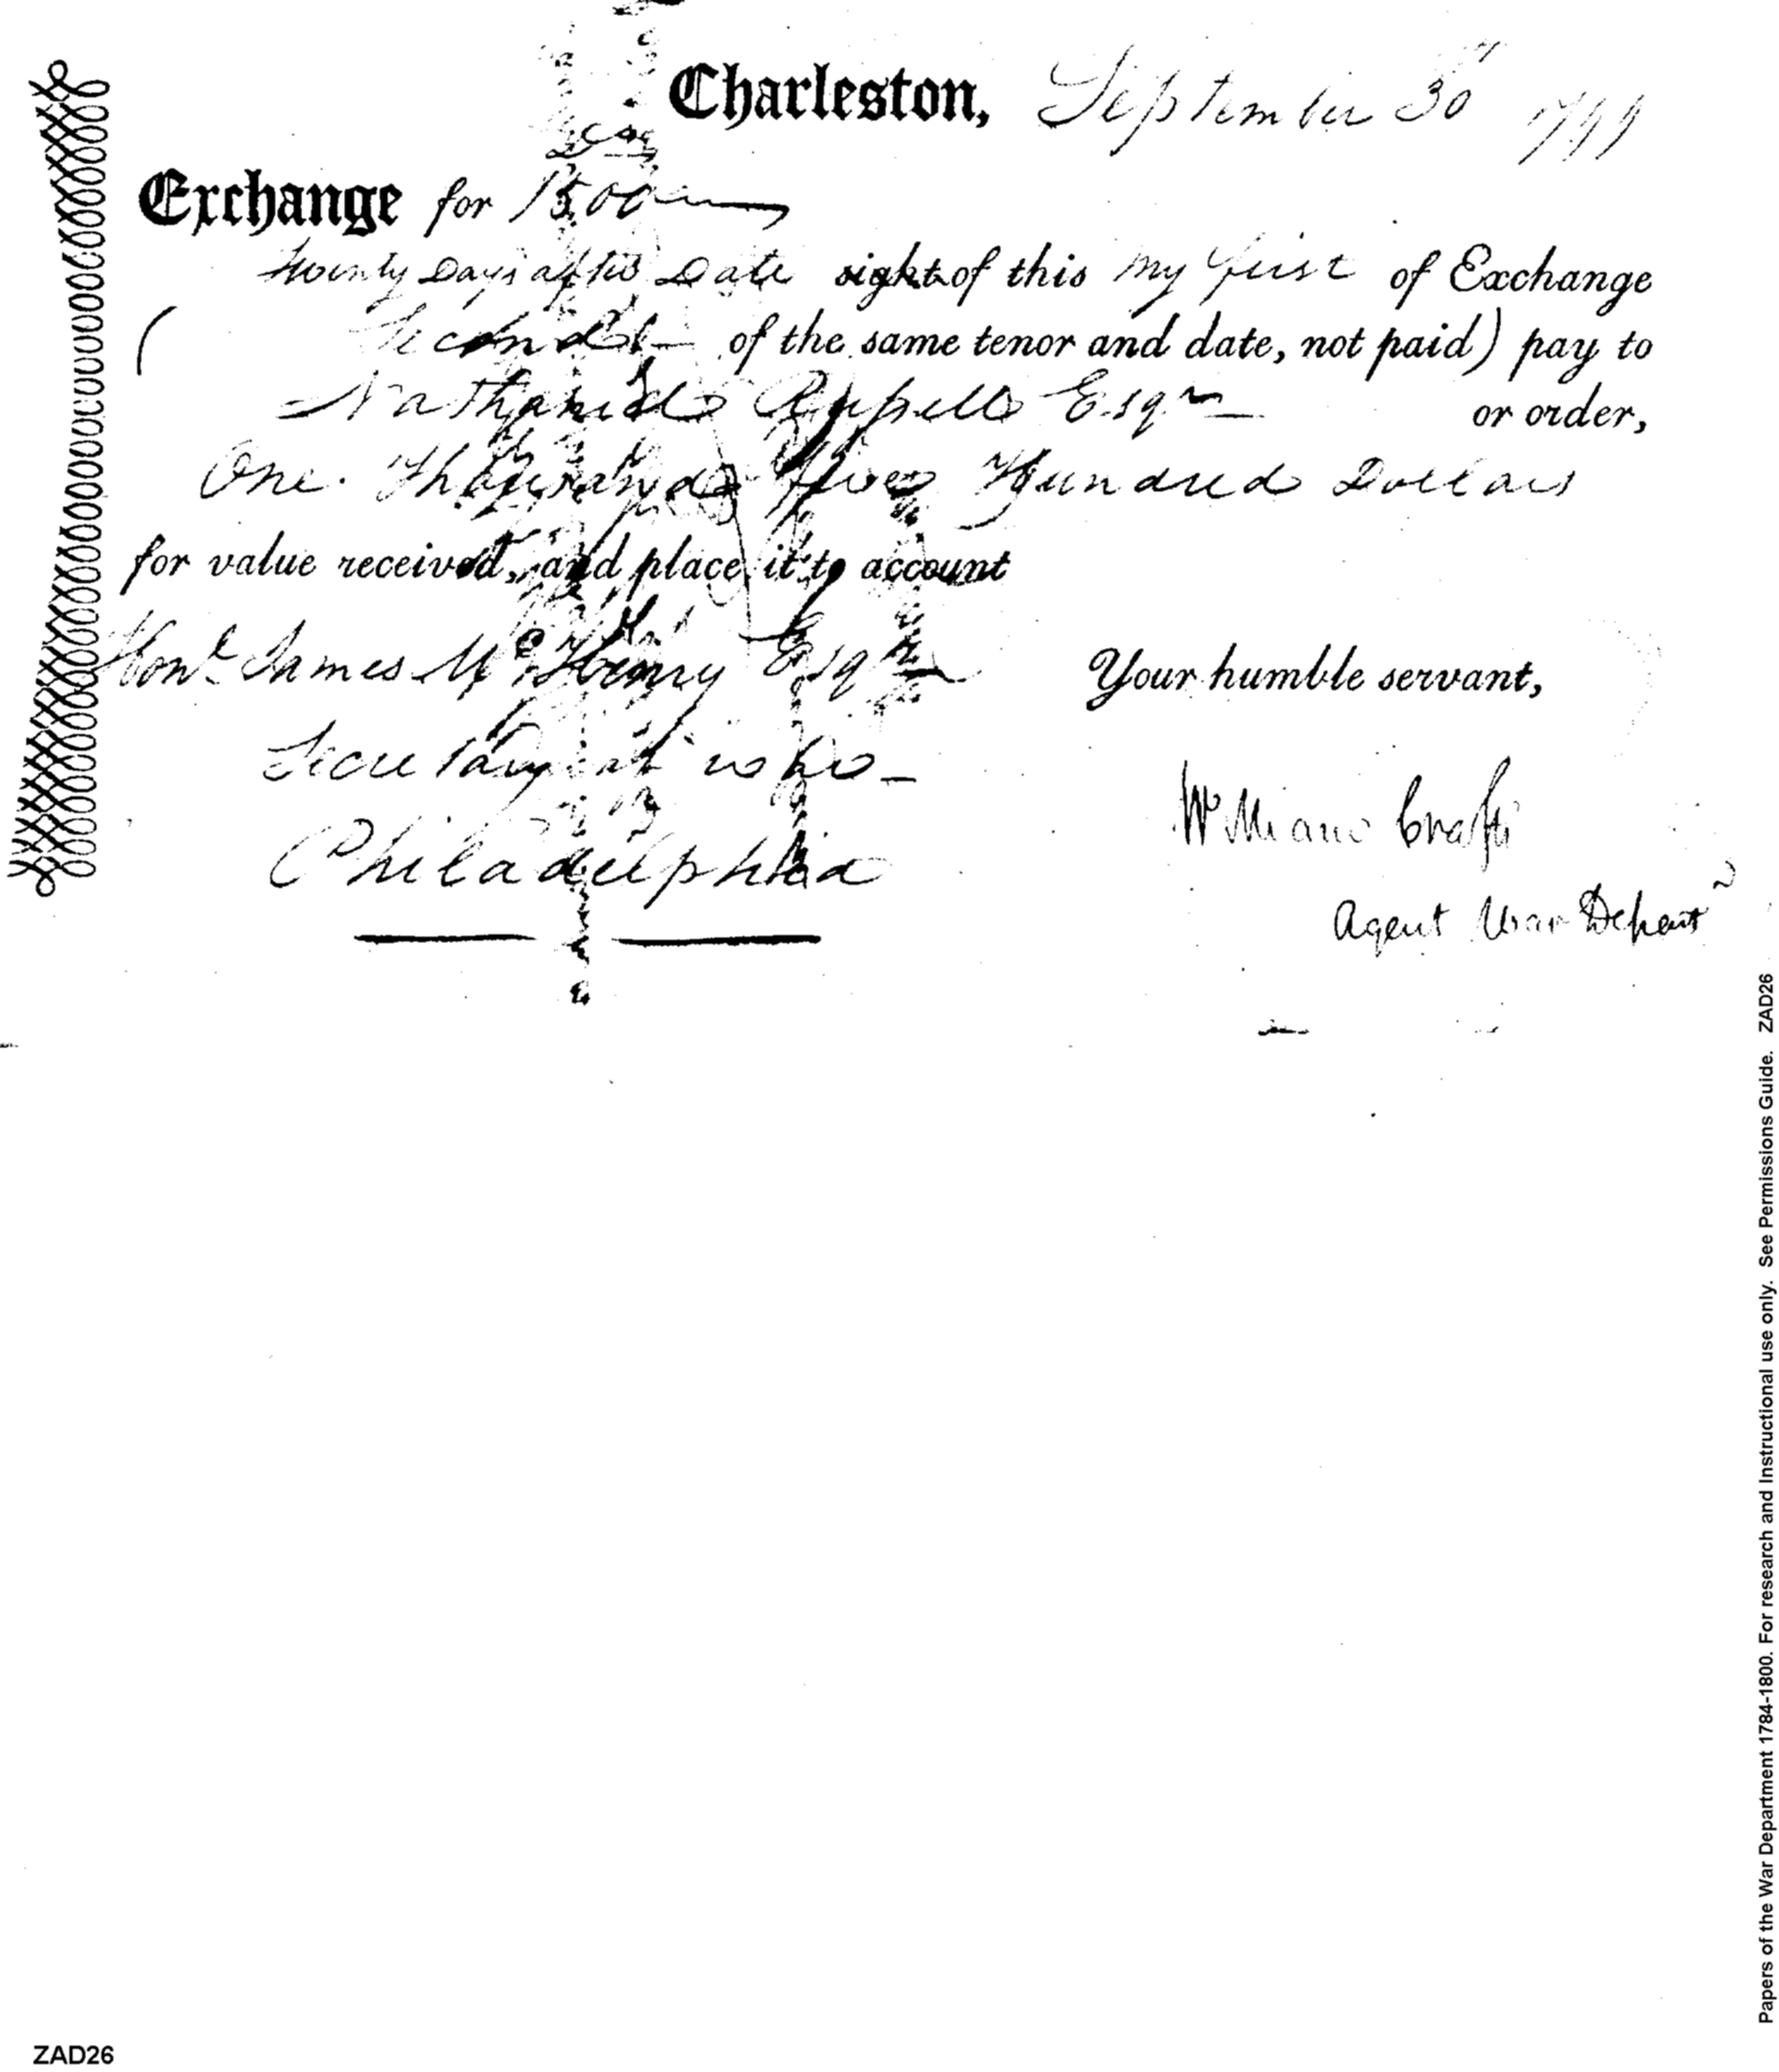 Charleston, September 30th 1799
Exchange for 1500
Twenty Days after Date sight of this my first of Exchange
( Second of the same tenor and date, not paid) pay to
Nathaniel Russell Esqr or order,
One Thousand five Hundred Dollars
for value received, and place it to account
Honl. James McHenry Esqr
Your humble servant,
Secretary at war
William Crafts
Philadelphia
Agent War Depart
Papers of the War Department 1784-1800. For research and Instructional use only. See Permissions Guide. ZAD26
ZAD26